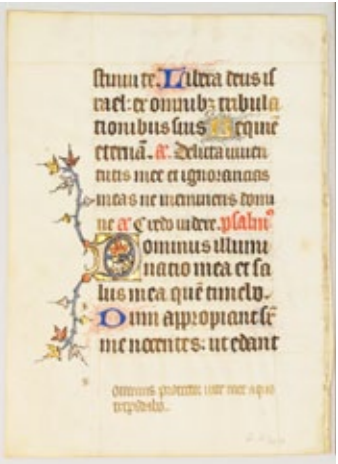 stinui te. Libera deus is
rael: ex omnibꝫ tribula
tionibus suis Requiē
eternā. a. Delicta iuuen
tutis mee et ignorancias
meas ne memineris domi
ne a Credo uidere. psalmꝰ
Dominus illumi
natio mea et sa
lus mea quē timebo.
Dum appropiant sr̄
me nocentes: ut edant